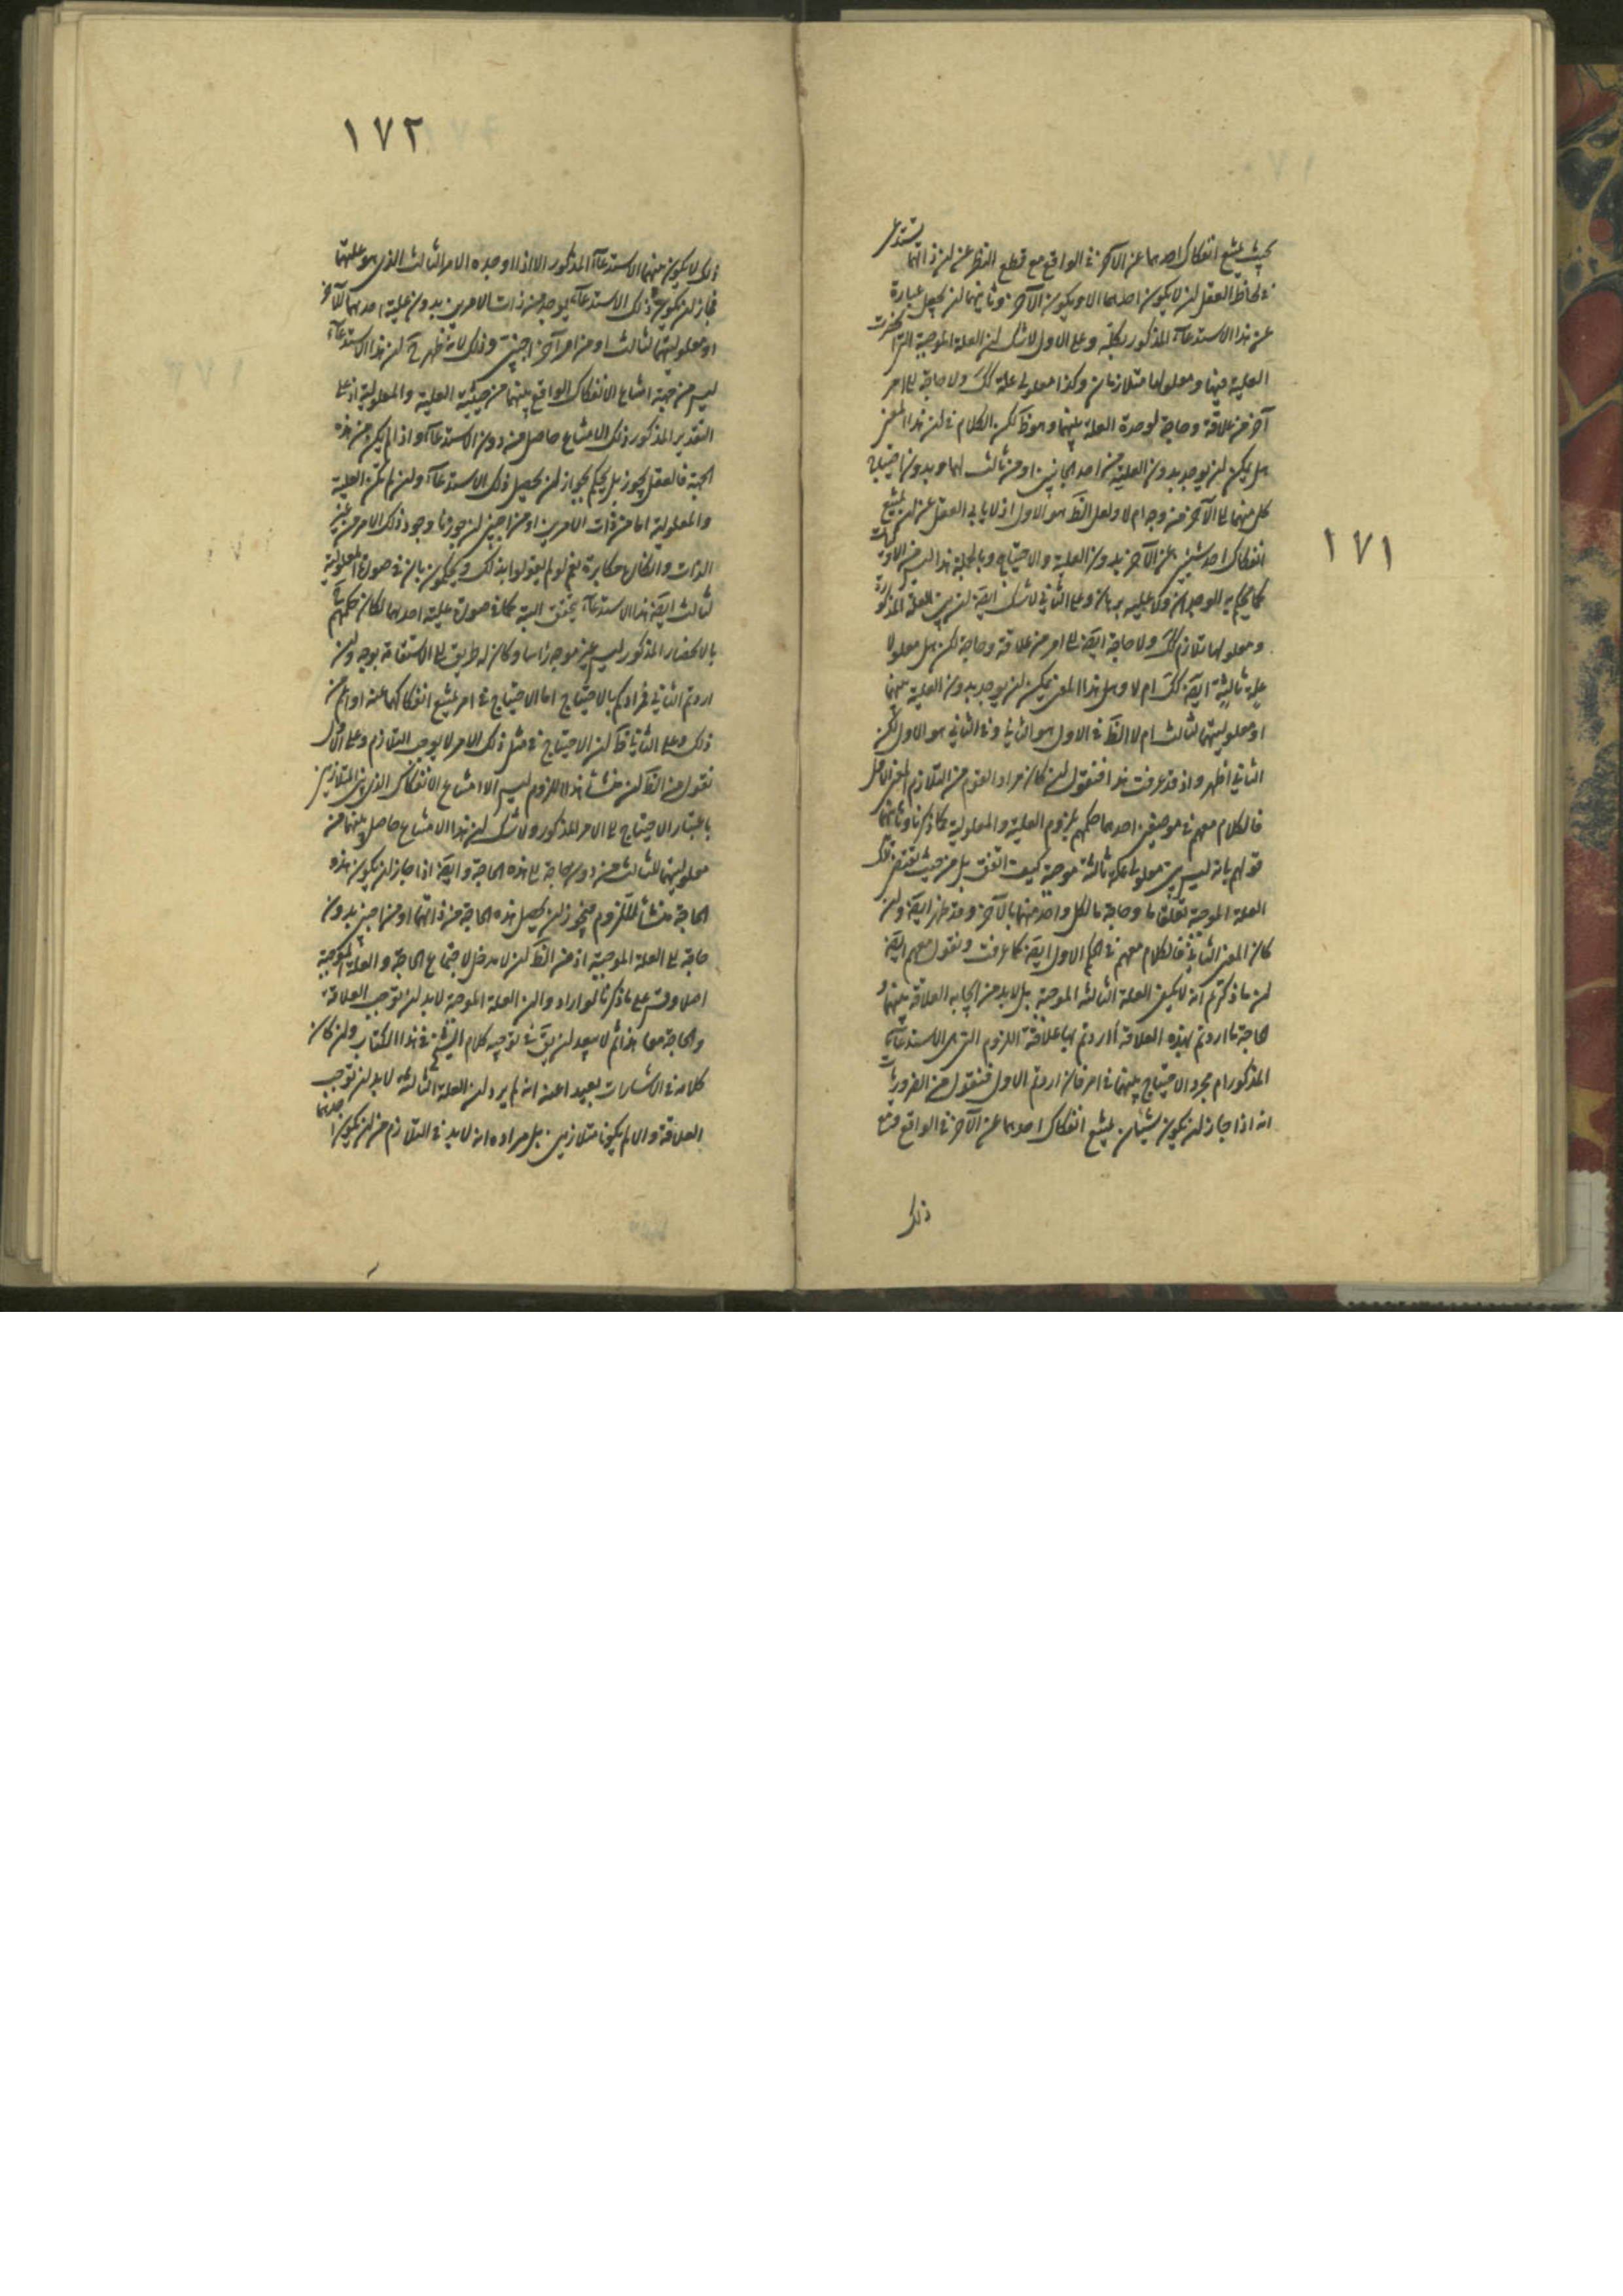 ١٧١
بحيث يمتنع انفكاك احدهما عن الآخر في الواقع مع قطع النظر عن ان ذاتهما يستدعى
في لحاظ العقل ان لا يكون احدهما الا ويكون الآخر وثانيهما ان يجعل عبارة
عن هذا الاستدعاء المذكور وعلى الاول لا شك ان العلة الموجبة التي
العلية فيها ومعلولها متلازمان وكذا معلولى علة كك ولا حاجة الى امر
آخر من علاقة وحاجة لوحدة العلة بينهما وهو ظ لكن الكلام في ان هذا المعنى
هل يمكن ان يوجد بدون العلية من احد الجانبين او من ثالث لهما وبدون احتياج
كل منهما الى الآخر من وجه ام لا ولعل الظ هو الاول اذ لا يابى العقل عن ان يمتنع
انفكاك احد شيئين عن الآخر بدون العلية والاحتياج وبالجملة هذا ليس من الاوليات
كما يحكم به الوجدان ولا عليه برهان وعلى الثاني لا شك ايضا ان بين العلة المذكورة
ومعلولها تلازم كك ولا حاجة ايضا الى امر من علاقة وحاجة لكن هل معلولا
علة ثالثة ايضا كك ام لا وهل هذا المعنى يمكن ان يوجد بدون العلية بينهما
او معلوليتهما لثالث ام لا الظ في الاول هو الثاني وفي الثاني هو الاول لكن
الثاني اظهر واذ قد عرفت هذا فنقول ان كان مراد القوم من التلازم المعنى الاول
فالكلام معهم في موضعين احدهما حكمهم بلزوم العلية والمعلولية كما ذكرنا وثانيهما
قولهم بانه ليس بين معلولى علة ثالثة موجبة كيف اتفق بل من حيث تقتضى تلك
العلة الموجبة تعلقا ما وحاجة ما لكل واحد منهما بالآخر وقد ظهر ايضا وان
كان المعنى الثاني فالكلام معهم في الحكم الاول ايضا كما عرفت ونقول معهم ايضا
ان ما ذكرتم انه لا يكفي العلة الثالثة الموجبة بل لا بد من ايجابه العلاقة بينهما و
الحاجة ما اردتم بهذه العلاقة أاردتم بها علاقة اللزوم التي هي الاستدعاء
المذكور ام مجرد الاحتياج بينهما في امر فان اردتم الاول فنقول من الضروريات
انه اذا جاز ان يكون شيئان يمتنع انفكاك احدهما عن الآخر في الواقع ومع
ذلك
١٧٢
ذلك لا يكون بينهما الاستدعاء المذكور الا اذا اوجده الامر الثالث الذي هو علتهما
فجاز ان يكون ذلك الاستدعاء يوجد من ذات الامرين بدون علية احدهما للآخر
او معلوليتهما لثالث او من امر آخر اجنبى وذلك لانه ظهر ح ان هذا الاستدعاء
ليس من جهة امتناع الانفكاك الواقع بينهما من حيثية العلية والمعلولية اذ على
التقدير المذكور ذلك الامتناع حاصل من دون الاستدعاء واذا لم يكن من هذه
الجهة فالعقل يجوز بل يحكم بجواز ان يحصل ذلك الاستدعاء وان لم تكن العلية
والمعلولية اما من ذات الامرين او من اجنبى ان جوزنا وجود ذلك الامر من غير
الذات وانكاره مكابرة نعم لو لم يقولوا بذلك ويحكمون بان في صورة المعلولية
لثالث ايضا هذا الاستدعاء يتحقق البتة كما في صورة علية احدهما لكان حكمهم
بالانحصار المذكور ليس غير موجه راسا وكان له طريق الى الاستقامة بوجه وان
اردتم الثاني فمرادكم بالاحتياج اما الاحتياج في امر يمتنع انفكاكهما عنه او اعم من
ذلك وعلى الثاني ظ ان الاحتياج في مثل ذلك الامر لا يوجب التلازم وعلى الاول
نقول من الظ ان منشأ هذا اللزوم ليس الا امتناع الانفكاك الذي بين المتلازمين
باعتبار الاحتياج الى الامر المذكور ولا شك ان هذا الامتناع حاصل بينهما من
معلوليتهما للثالث من دون حاجة الى هذه الحاجة وايضا اذا جاز ان يكون هذه
الحاجة منشأ للتلازم فيجوز ان يحصل هذه الحاجة من ذاتهما او من اجنبى بدون
حاجة الى العلة الموجبة اذ من الظ ان لا مدخل لاجتماع الحاجة والعلة الموجبة
اصلا وقس على ما ذكرنا لو ارادوا ان العلة الموجبة لا بد ان توجب العلاقة
والحاجة معا هذا ثم لا يبعد ان يق في توجيه كلام الشيخ في هذا الكتاب وان كان
كلامه في الاشارات بعيدا عنه انه لم يرد ان العلة الثالثة لا بد ان توجب
العلاقة والا لم يكونا متلازمين بل مراده انه لا بد في التلازم من ان يكون احدهما